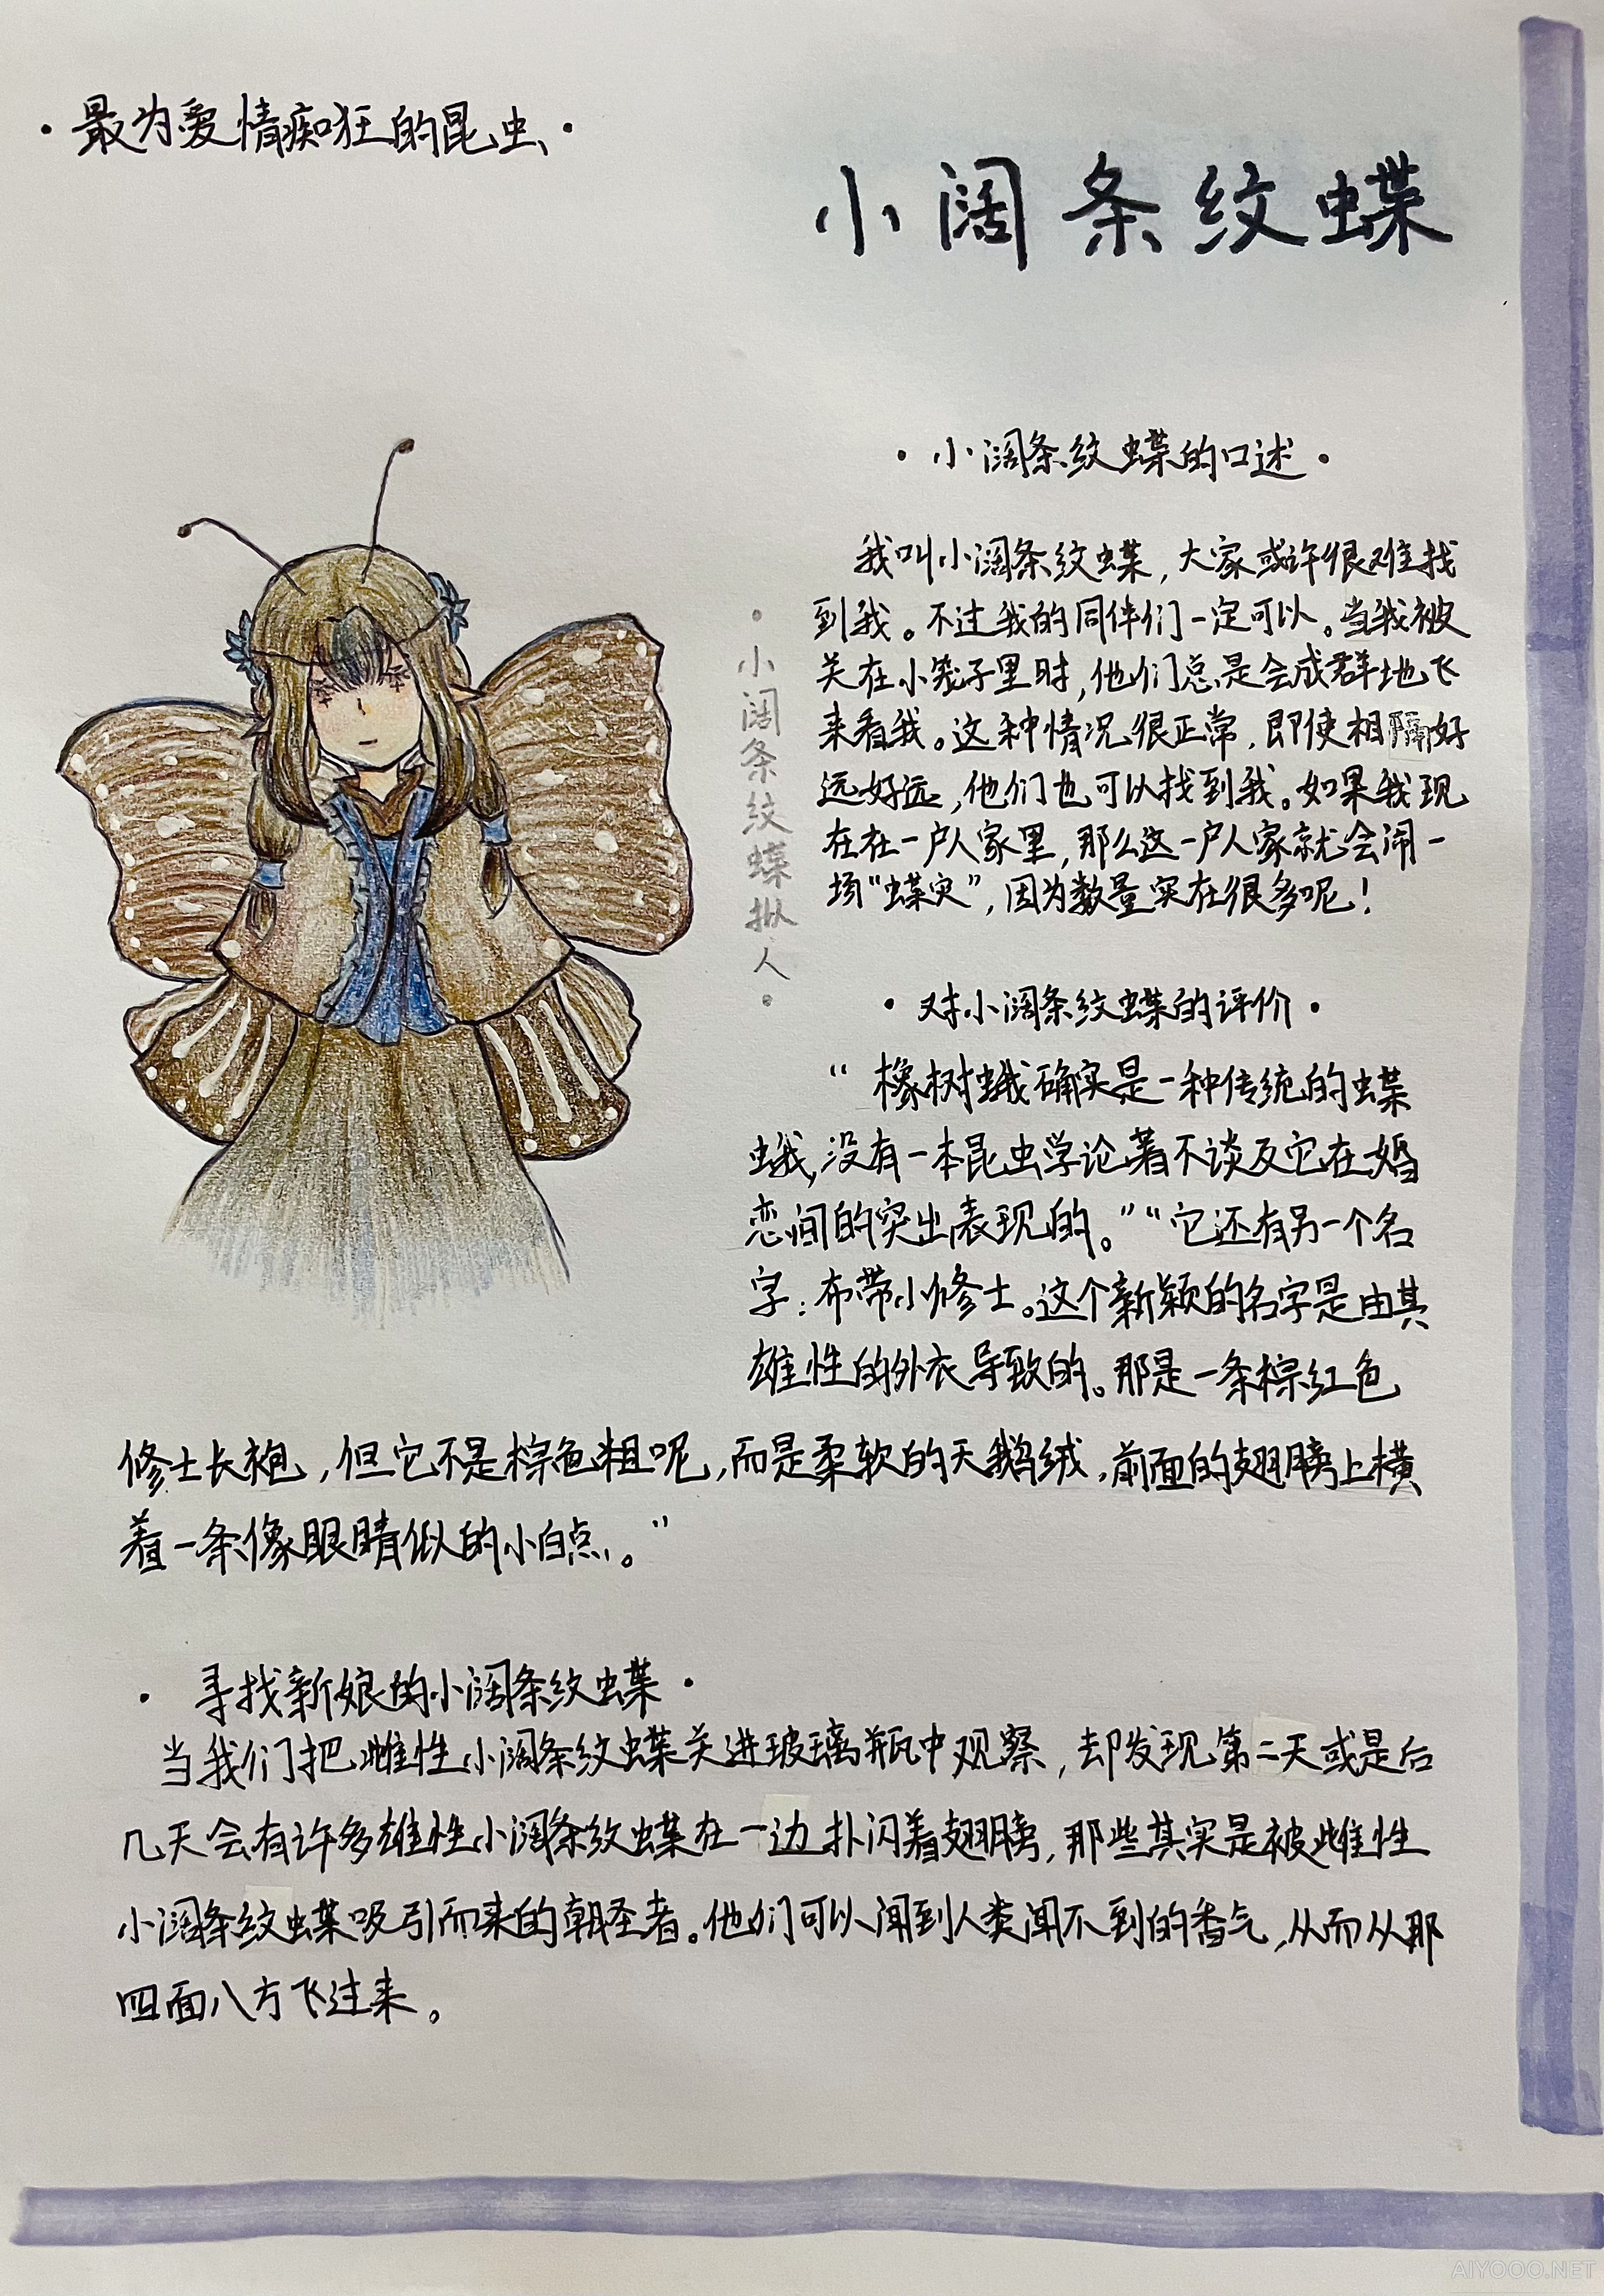 ·最为爱情痴狂的昆虫·
小阔条纹蝶
·小阔条纹蝶的口述·
我叫小阔条纹蝶，大家或许很难找
到我。不过我的同伴们一定可以。当我被
关在小笼子里时，他们总是会成群地飞
来看我。这种情况很正常，即使相隔好
远好远，他们也可以找到我。如果我现
在在一户人家里，那么这一户人家就会闹一
场“蝶灾”，因为数量实在很多呢！
·小阔条纹蝶拟人·
·对小阔条纹蝶的评价·
“橡树蛾确实是一种传统的蝶
蛾，没有一本昆虫学论著不谈及它在婚
恋间的突出表现的。”“它还有另一个名
字：布带小修士。这个新颖的名字是由其
雄性的外衣导致的。那是一条棕红色
修士长袍，但它不是棕色粗呢，而是柔软的天鹅绒，前面的翅膀上横
着一条像眼睛似的小白点。”
·寻找新娘的小阔条纹蝶·
当我们把雌性小阔条纹蝶关进玻璃瓶中观察，却发现第二天或是后
几天会有许多雄性小阔条纹蝶在一边扑闪着翅膀，那些其实是被雌性
小阔条纹蝶吸引而来的朝圣者。他们可以闻到人类闻不到的香气，从而从那
四面八方飞过来。
AIYOOO.NET